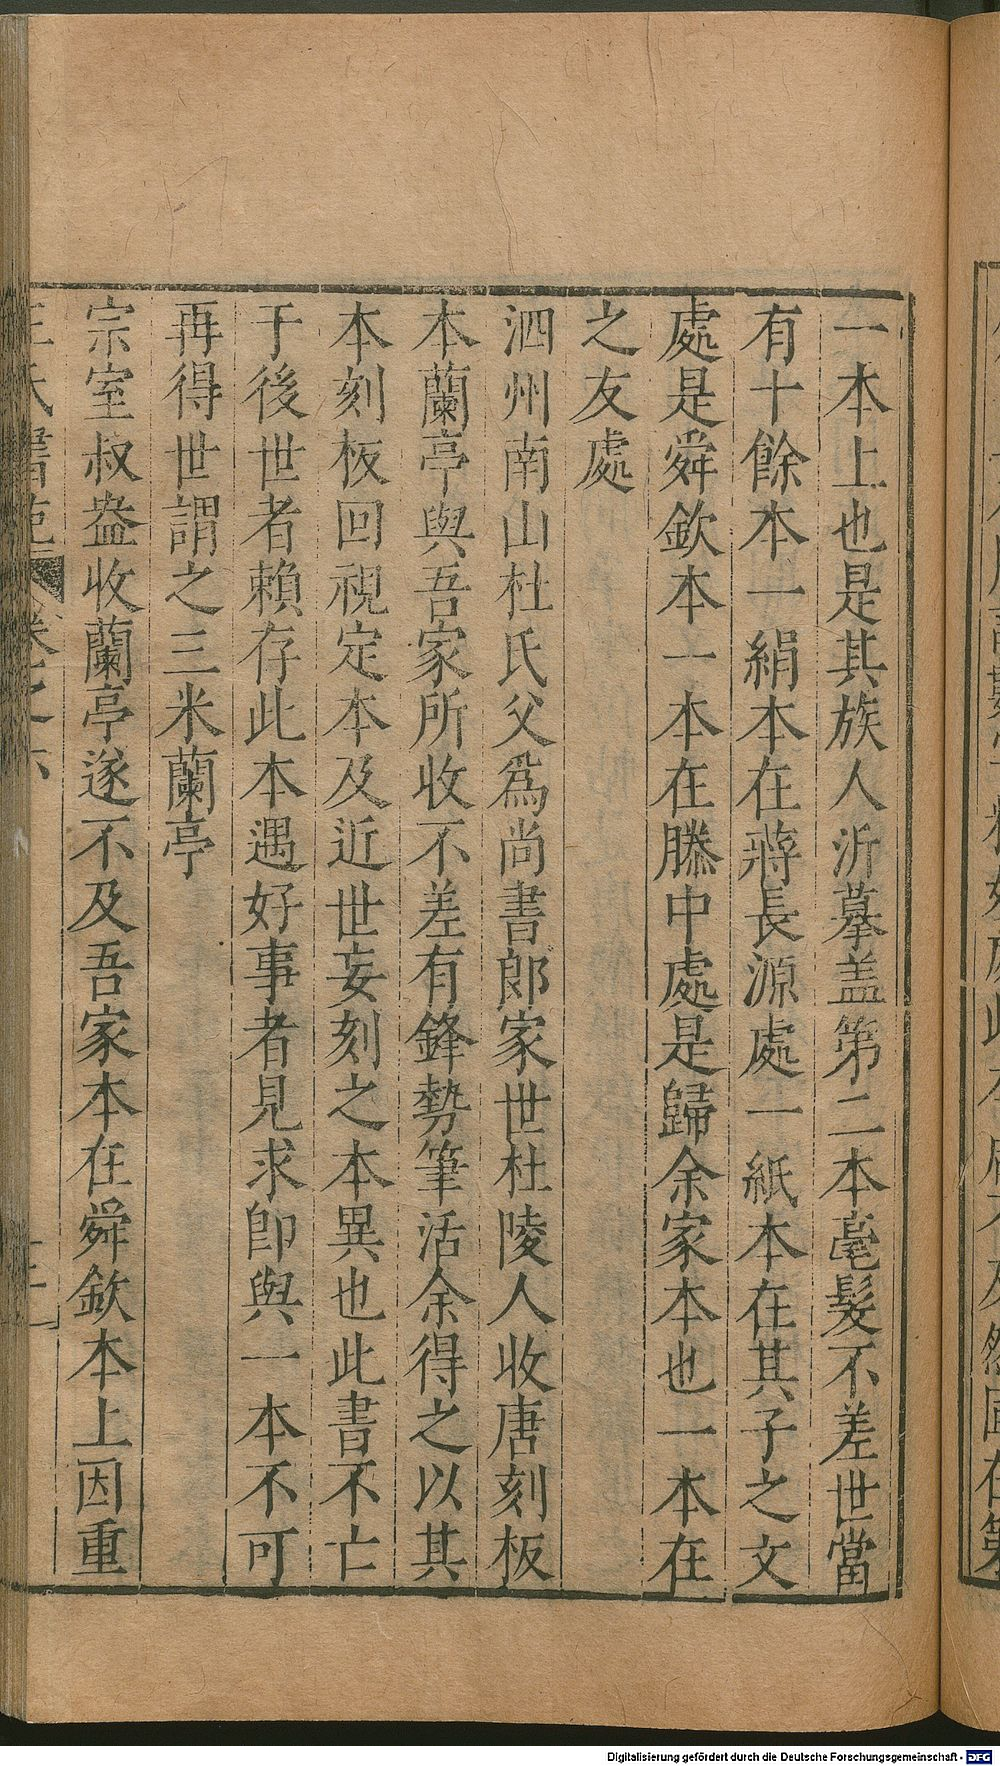 一本上也是其族人沂摹盖第二本毫髮不差世當
有十餘本一絹本在蔣長源處一紙本在其子之文
處是舜欽本一本在滕中處是歸余家本也一本在
之友處
泗州南山杜氏父爲尚書郎家世杜陵人收唐刻板
本蘭亭與吾家所收不差有鋒勢筆活余得之以其
本刻板回視定本及近世妄刻之本異也此書不亡
于後世者賴存此本遇好事者見求卽與一本不可
再得世謂之三米蘭亭
宗室叔盎收蘭亭遂不及吾家本在舜欽本上因重
王氏書苑 卷之六
Digitalisierung gefördert durch die Deutsche Forschungsgemeinschaft - DFG